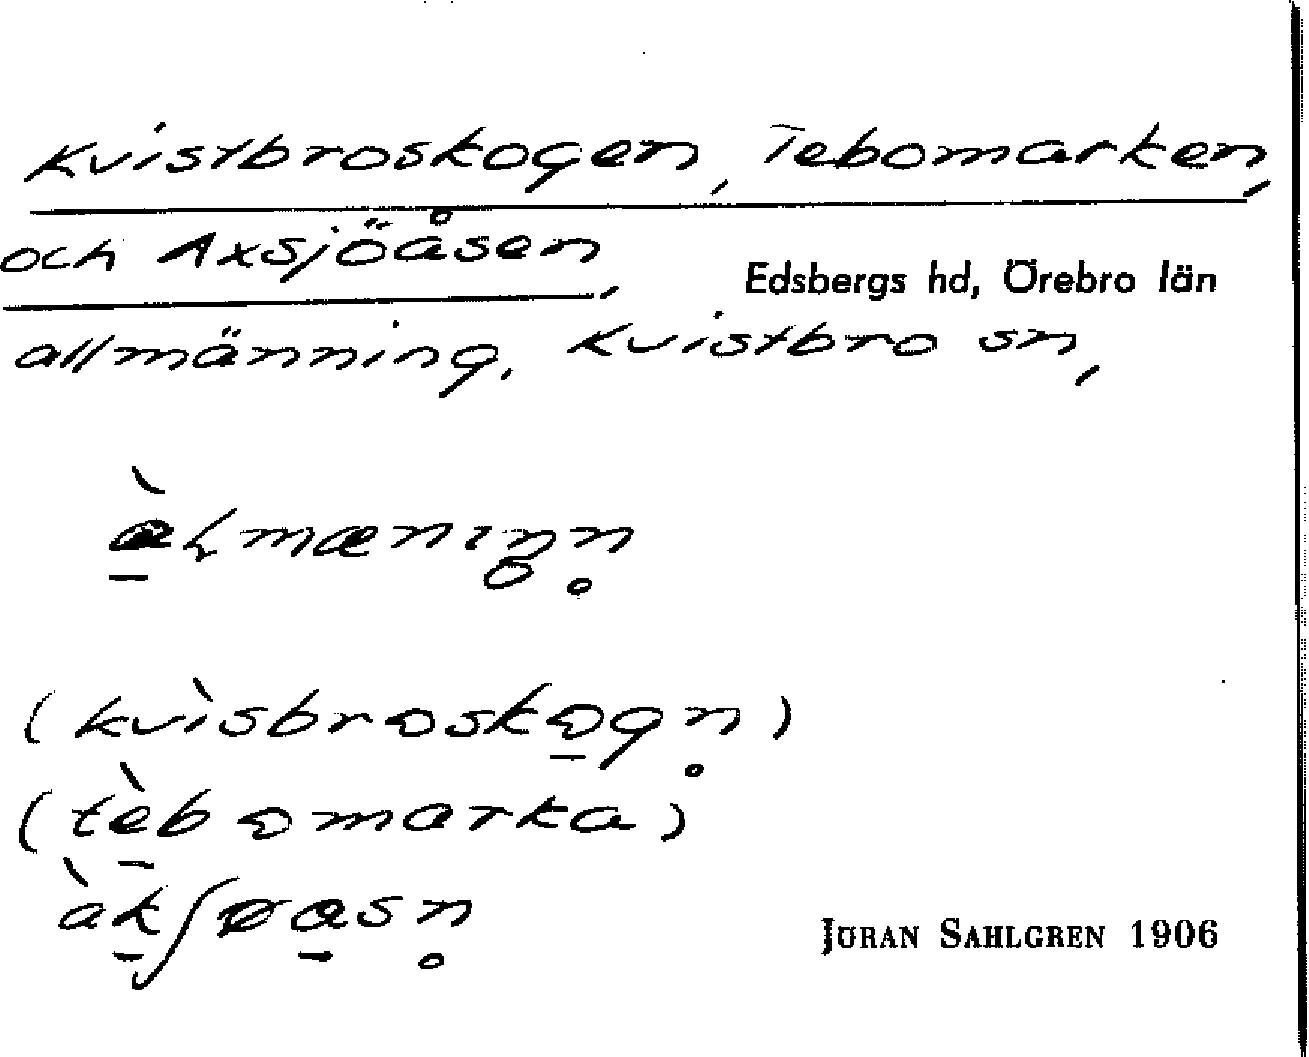 Kvistbroskogen, Tebomarken,
och Axsjöåsen,
Edsbergs hd, Örebro län
allmänning, Kvistbro sn,
(kvìsbroskogn̥)
(tèbomarka)
JÖRAN SAHLGREN 1906